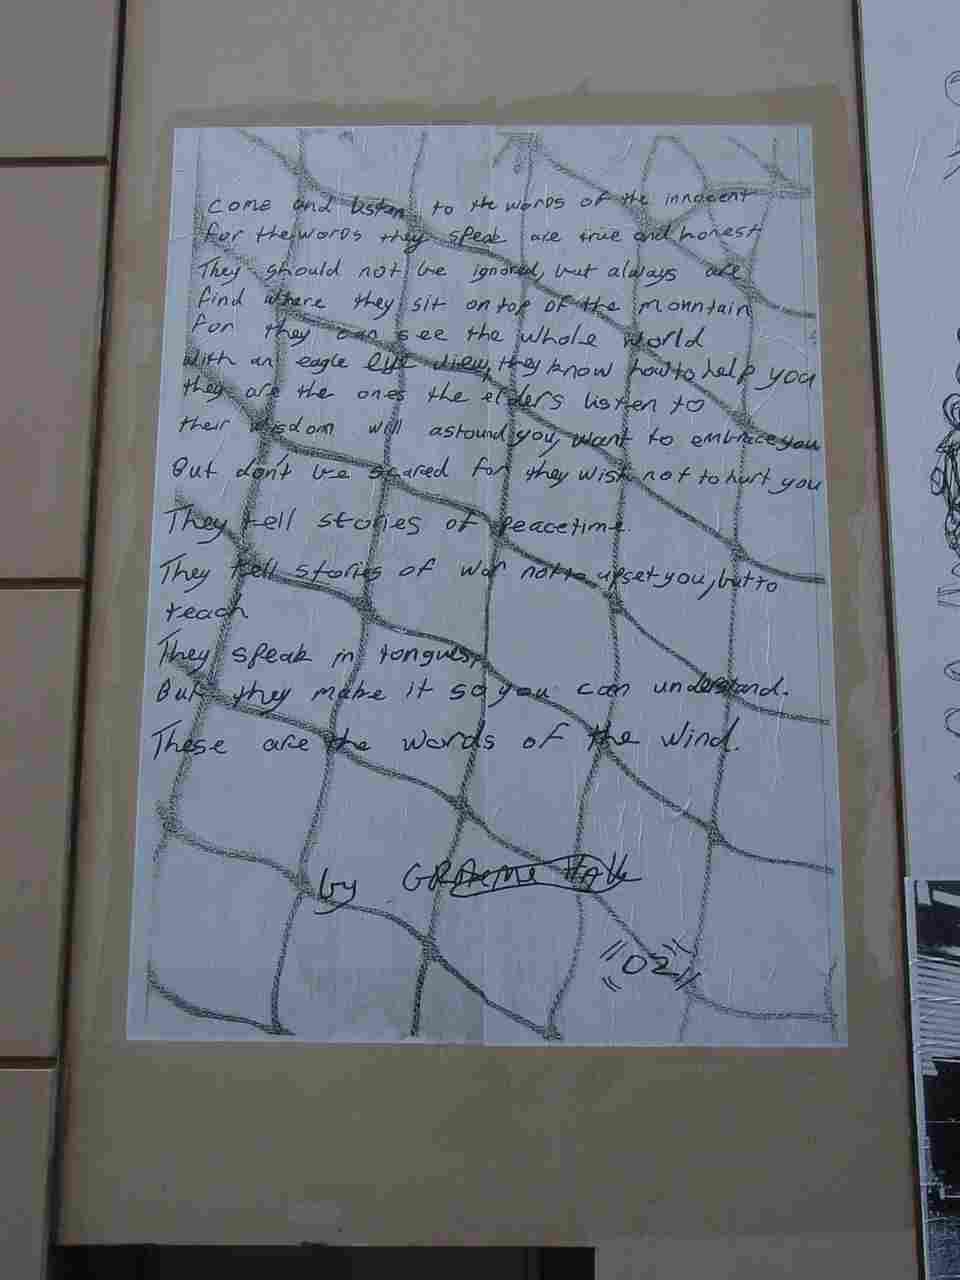 Come and listen to the words of the innocent
for the words they speak are true and honest
They should not be ignored, but always are
find where they sit on top of the mountain
For they can see the whole world
with an eagle eye view, they know how to help you
they are the ones the elders listen to
their wisdom will astound you, want to embrace you
But don't be scared for they wish not to hurt you
They tell stories of peacetime.
They tell stories of war not to upset you, but to
teach
They speak in tongues,
But they make it so you can understand.
These are the words of the wind.
by GRAEME HALL
"02"